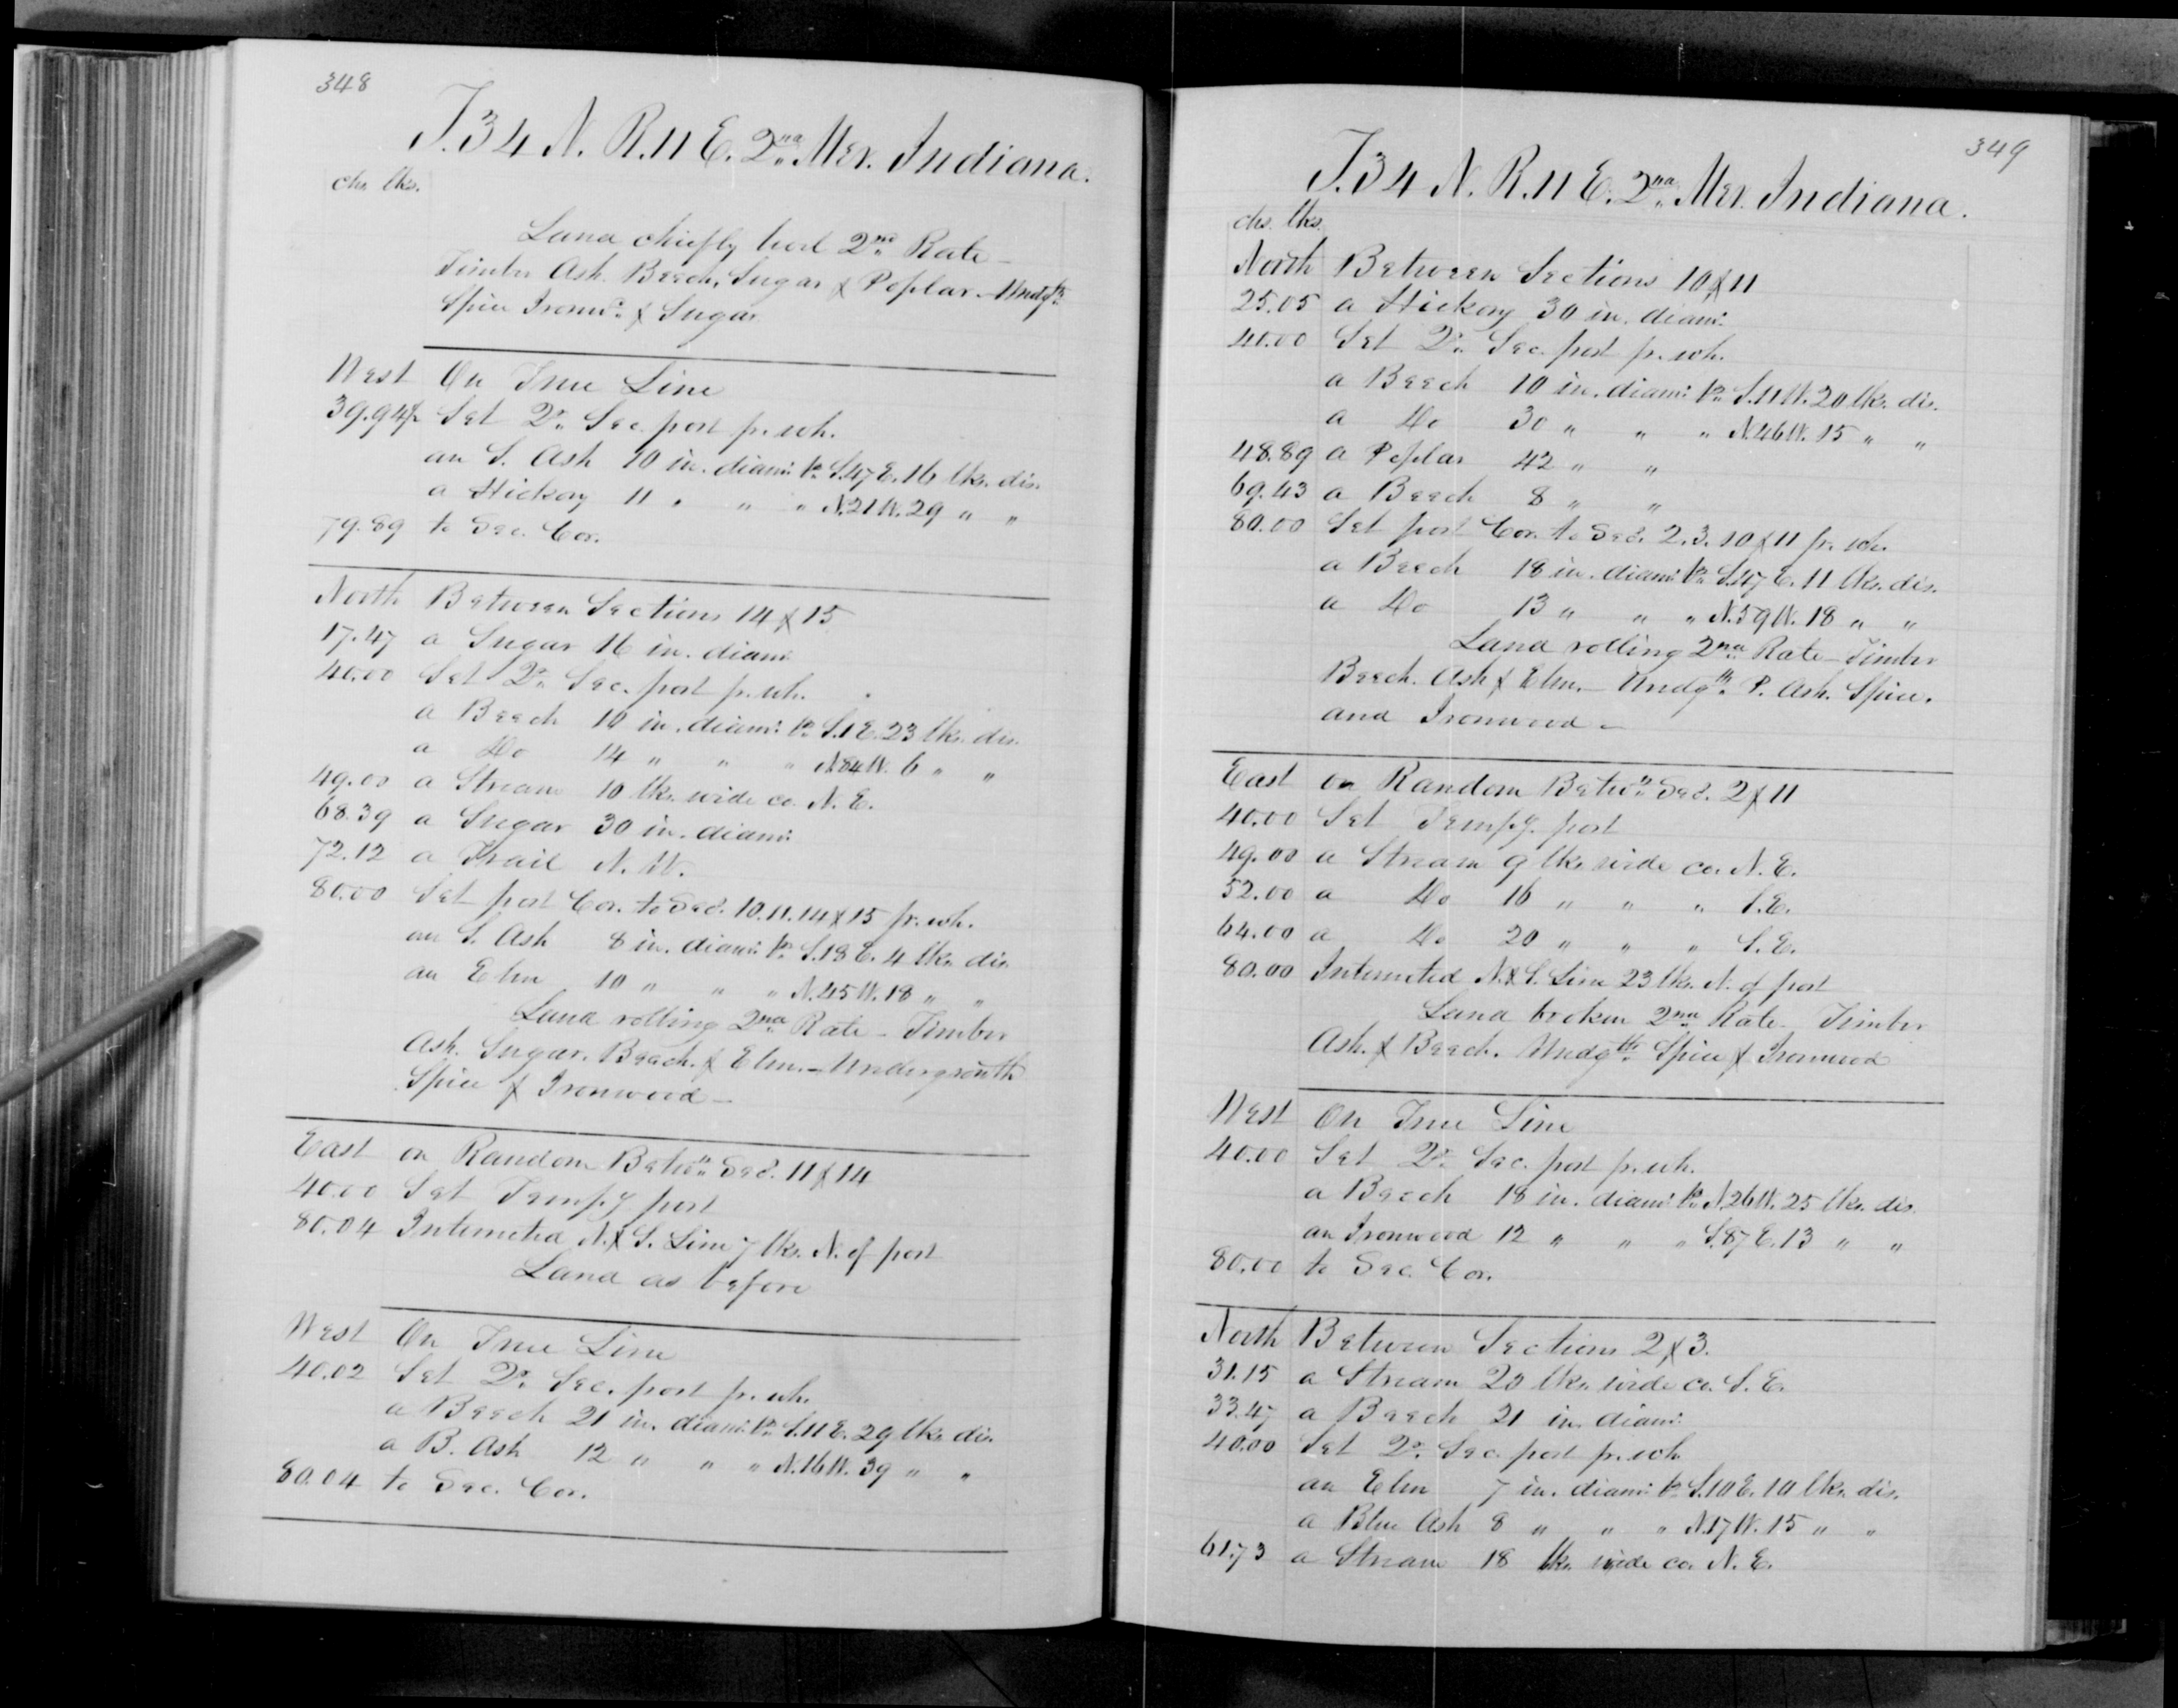 348
T.34 N. R.11 E. 2nd Mer. Indiana.
chs. lks.
Land chiefly level 2nd Rate –
Timber Ash. Beech, Sugar & Poplar. – Undgth
Spice Ironwd & Sugar
West On True Line
39.94½ Set Qr. Sec. post fr. wh.
an S. Ash 10 in. diam: brs S.47 E. 16 lks. dis.
a Hickory 11 " " " N.21 W. 29 " "
79.89 to Sec. Cor.
North Between Sections 14 & 15
17.47 a Sugar 16 in. diam:
40.00 Set Qr. Sec. post fr. wh.
a Beech 10 in. diam: brs S.1 E. 23 lks. dis.
a Do 14 " " " N.84 W. 6 " "
49.00 a Stream 10 lks. wide co. N. E.
68.39 a Sugar 30 in. diam:
72.12 a Trail N. W.
80.00 Set post Cor. to Secs. 10. 11. 14 & 15 fr. wh.
an S. Ash 8 in. diam: brs S.13 E. 4 lks. dis.
an Elm 10 " " " N.45 W. 18 " "
Land rolling 2nd Rate – Timber
Ash. Sugar. Beech. & Elm. – Undergrowth
Spice & Ironwood –
East on Random Betwn Secs. 11 & 14
40.00 Set Tempy post
80.04 Intersected N. & S. Line 7 lks. N. of post
Land as before
West On True Line
40.02 Set Qr. Sec. post fr. wh.
a Beech 21 in. diam: brs S.11 E. 29 lks. dis.
a B. Ash 12 " " " N.16 W. 39 " "
80.04 to Sec. Cor.
349
T.34 N. R.11 E. 2nd Mer. Indiana.
chs. lks.
North Between Sections 10 & 11
25.05 a Hickory 30 in. diam:
40.00 Set Qr. Sec. post fr. wh.
a Beech 10 in. diam: brs S.11 W. 20 lks. dis.
a Do 30 " " " N.46 W. 15 " "
48.89 a Poplar 42 " "
69.43 a Beech 8 " "
80.00 Set post Cor. to Secs. 2. 3. 10 & 11 fr. wh.
a Beech 18 in. diam: brs S.47 E. 11 lks. dis.
a Do 13 " " " N.59 W. 18 " "
Land rolling 2nd Rate – Timber
Beech. Ash & Elm. – Undgth P. Ash. Spice.
and Ironwood –
East on Random Betwn Secs. 2 & 11
40.00 Set Tempy. post
49.00 a Stream 9 lks. wide co. N. E.
52.00 a Do 16 " " " S. E.
64.00 a Do 20 " " " S. E.
80.00 Intersected N. & S. Line 23 lks. N. of post
Land broken 2nd Rate – Timber
Ash. & Beech. Undgth Spice & Ironwood
West On True Line
40.00 Set Qr. Sec. post fr. wh.
a Beech 18 in. diam: brs N.26 W. 25 lks. dis.
an Ironwood 12 " " " S.87 E. 13 " "
80.00 to Sec. Cor.
North Between Sections 2 & 3.
31.15 a Stream 20 lks. wide co. S. E.
33.47 a Beech 21 in. diam:
40.00 Set Qr. Sec. post fr. wh.
an Elm 7 in. diam: brs S.10 E. 10 lks. dis.
a Blue Ash 8 " " " N.17 W. 15 " "
61.73 a Stream 18 lks. wide co. N. E.